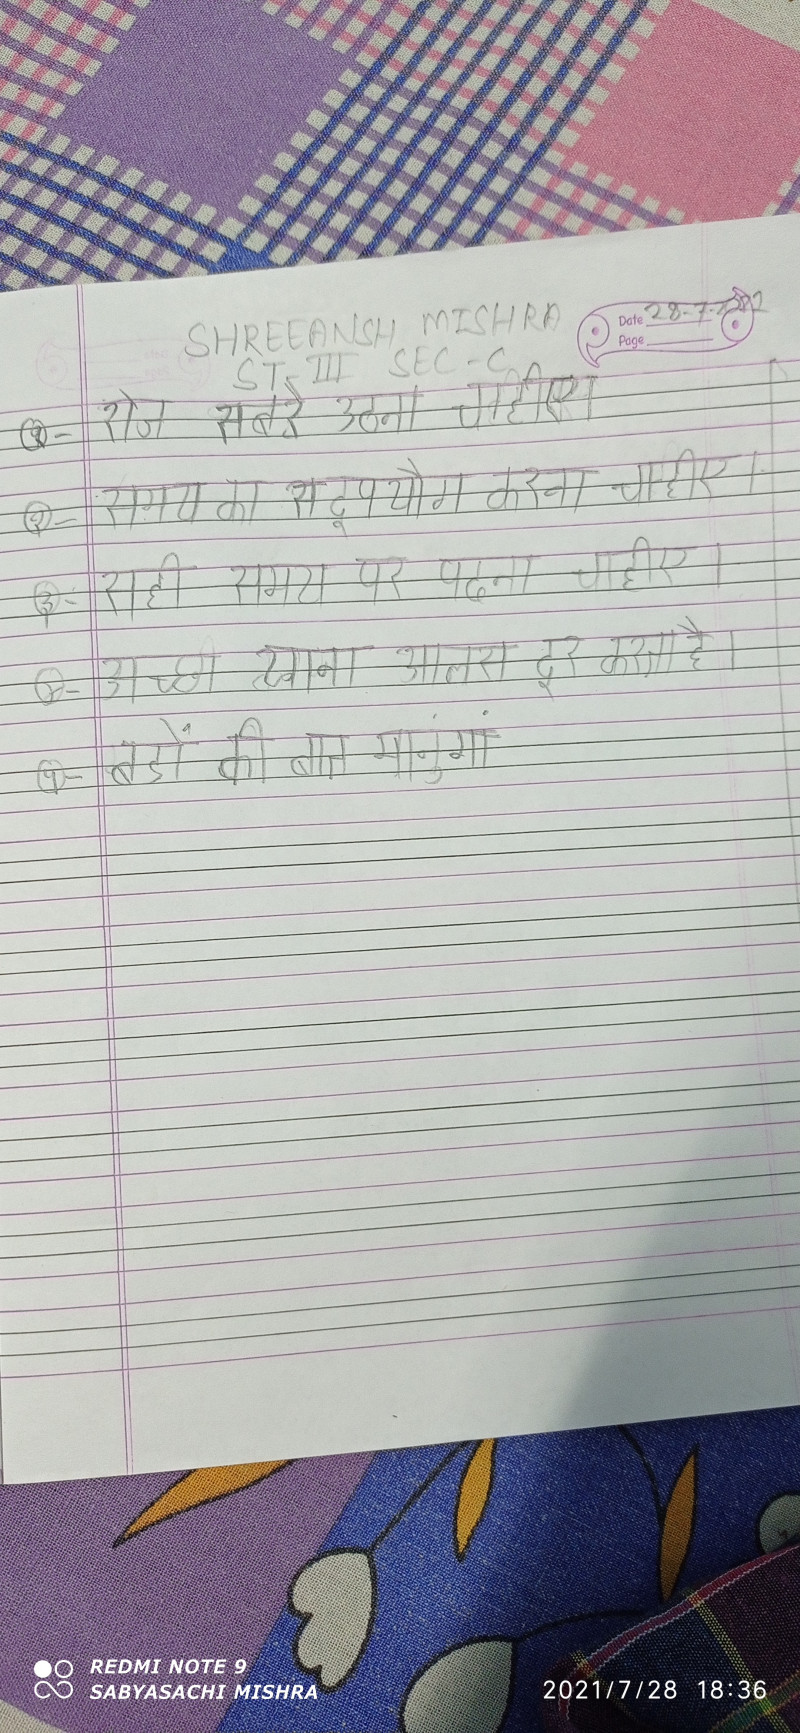 SHREEANSH MISHRA
Date 28-7-2021
Page
ST-III SEC-C
१- रोज सबेरे उठना चाहीए।
२- समय का सदूपयोग करना चाहीए।
३- सही समय पर पढना चाहीए।
४- अच्छी खाना आलस दूर करता है।
५- बडों की बात मानुंगां
REDMI NOTE 9
SABYASACHI MISHRA
2021/7/28 18:36